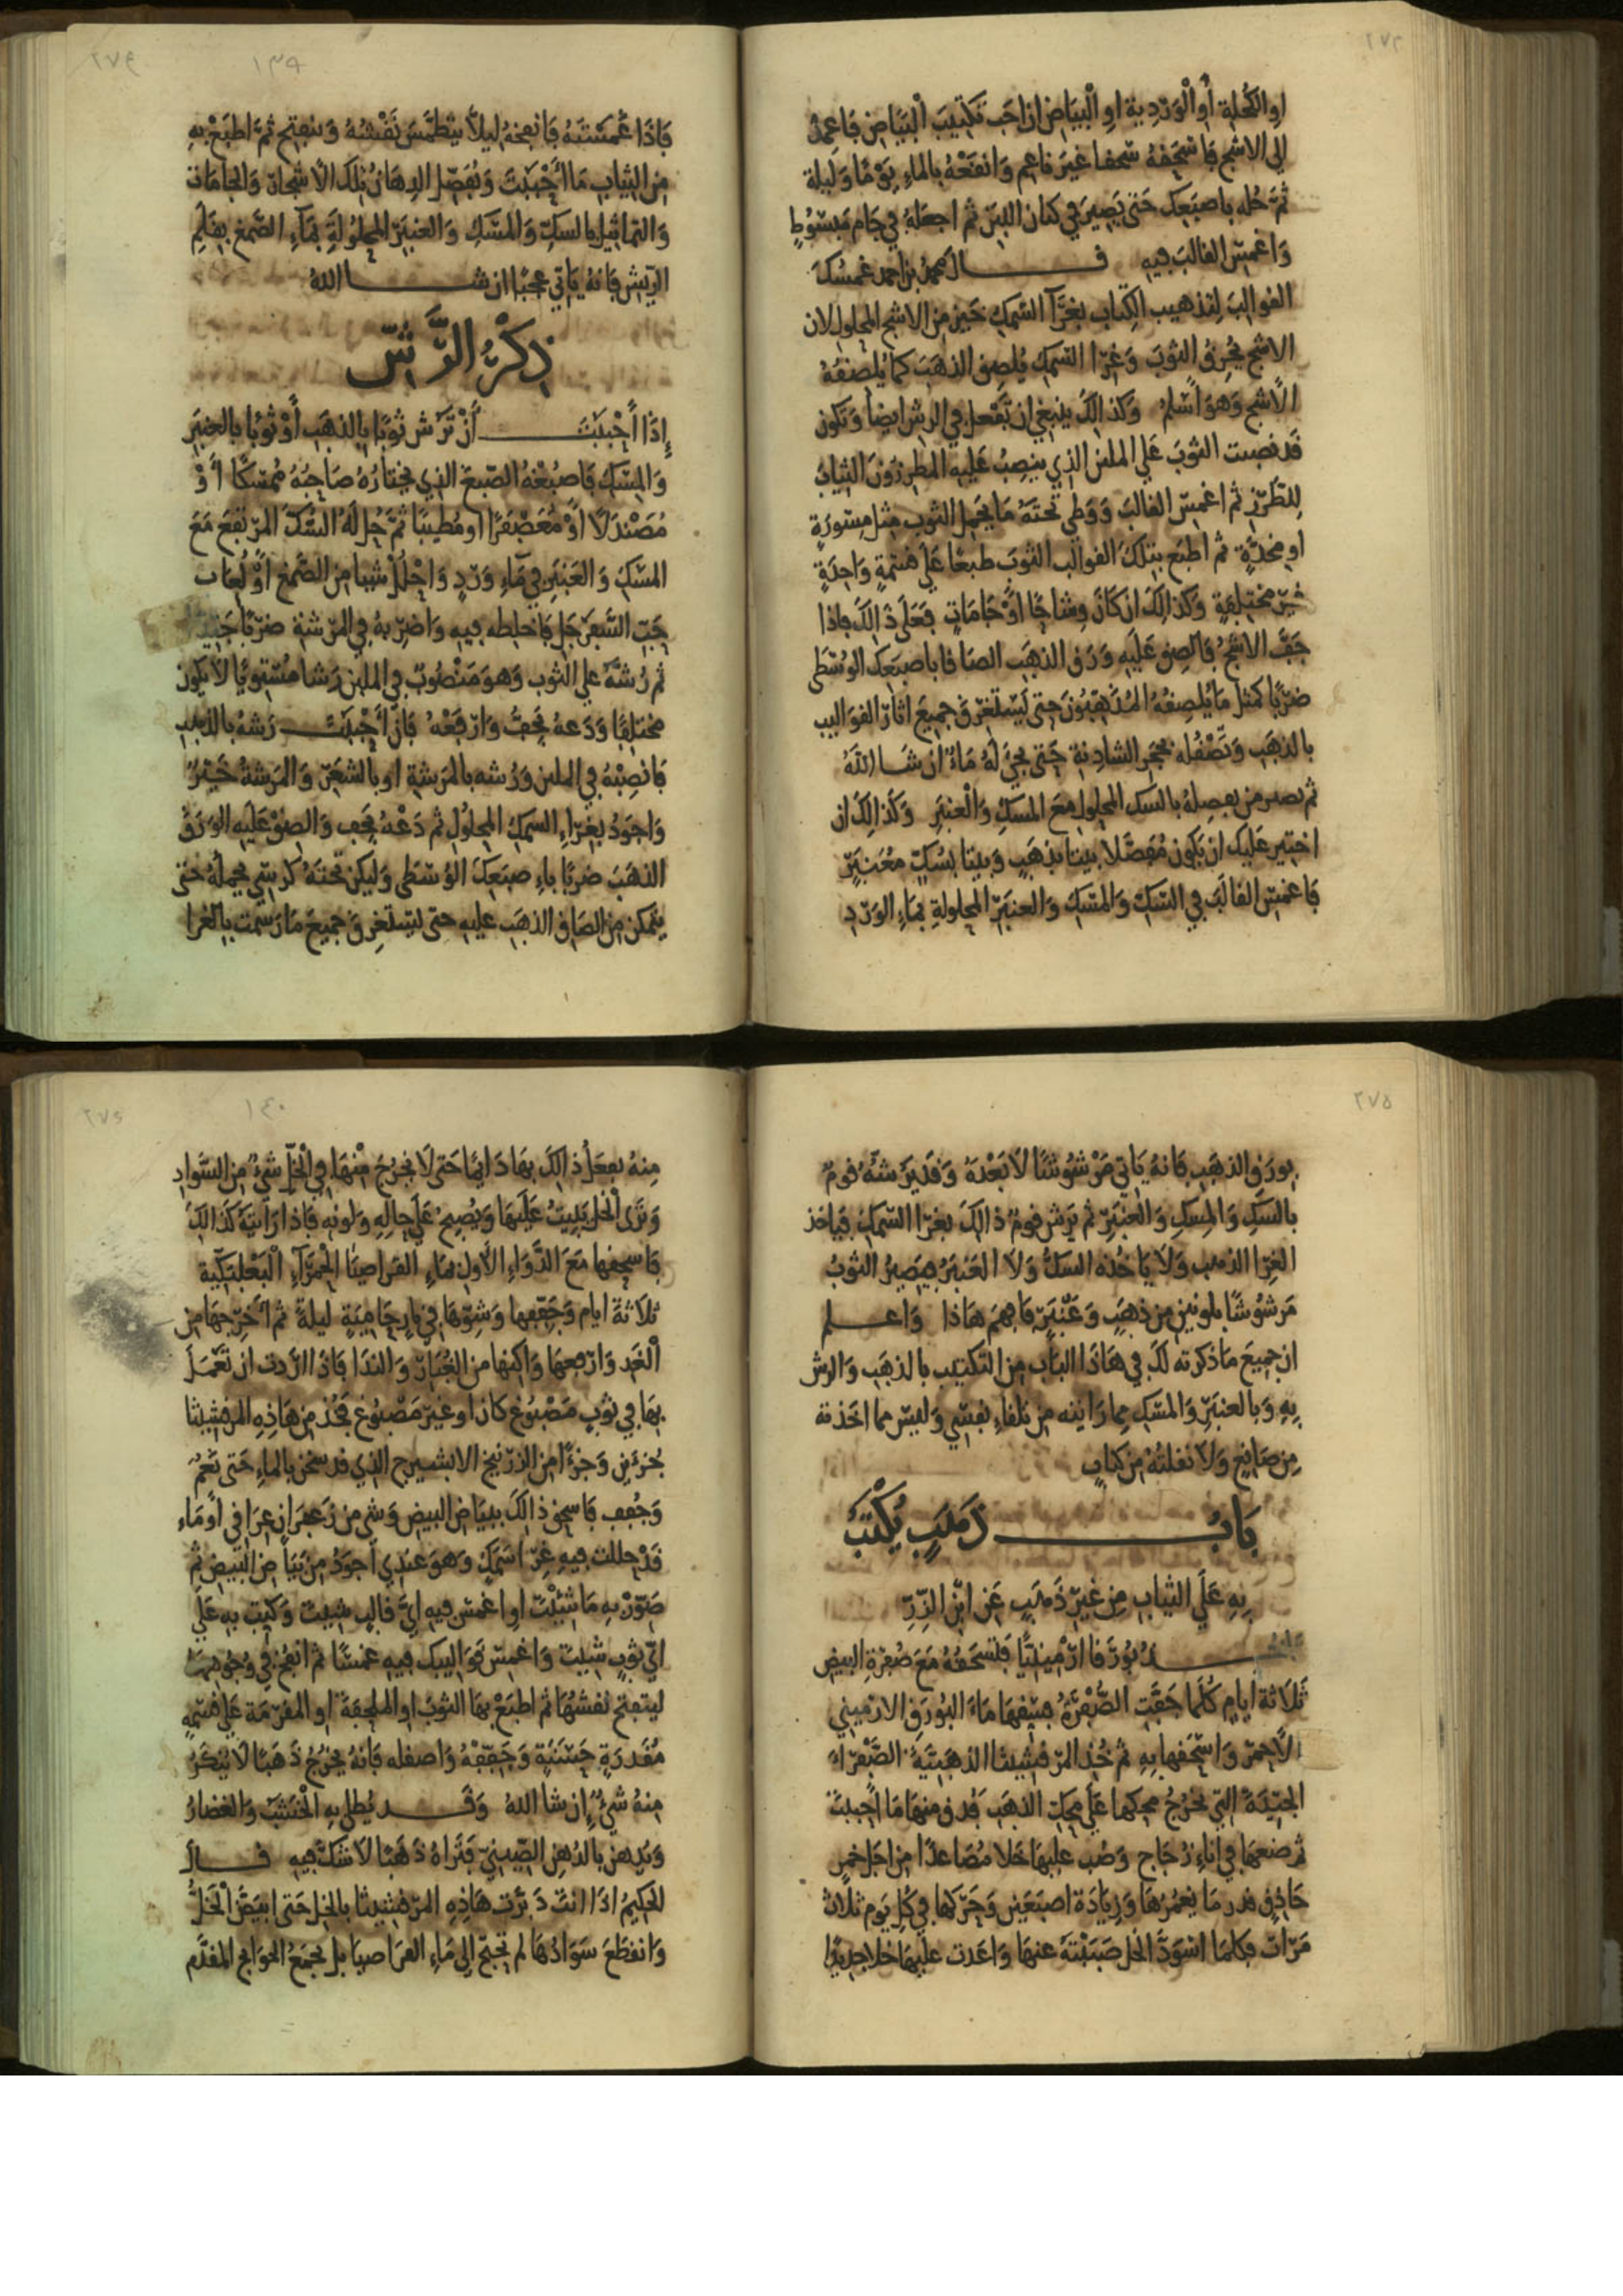 ٢٧٢
او الكحلية أو الوردية او البياض اذا احب تكتيب البياض فاعمد
الى الاشج فاسحقه سحقا غير ناعم وانقعه بالماء يوما وليلة
ثم حله باصبعك حتى يصير في كيان اللبن ثم اجعله في جام مبسوط
واغمس القالب فيه قال محمد بن احمد غمسك
القوالب لتذهيب الكتاب بغرآ السمك خير من الاشج المحلول لان
الاشج يحرق الثوب وغرا السمك يلصق الذهب كما يلصقه
الأشج وهو أسلم وكذالك ينبغي ان تفعل في الرش ايضا وتكون
قد نصبت الثوب على الملبن الذي ينصب عليه المطرزون الثياب
للتطرز ثم اغمس القالب ووطي تحته ما يحمل الثوب مثل مسورة
او مخدة ثم اطبع بتلك القوالب الثوب طبعا على قسمة واحدة
غير مختلفة وكذالك ان كان وشاحا أو جامات فعلى ذالك فاذا
جف الاشج فالصق عليه ورق الذهب الصاقا باصبعك الوسطى
ضربا كمثل ما يلصقه المذهبون حتى يستغرق جميع اثار القوالب
بالذهب وتصقله بحجر الشادنة حتى يجي له ماء ان شا الله
ثم تفصله بالسك المحلول مع المسك والعنبر وكذالك ان
اختير عليك ان يكون مفصلا بيتا بذهب وبيتا بسك معنبر
فاغمس القالب في السك والمسك والعنبر المحلولة بماء الورد
١٣٩
فاذا غمسته فانفخه ليلا ينطمس نقشه وينفتح ثم اطبع به
من الثياب ما أحببت وتفصل الدهان تلك الأشجار والجامات
والتماثيل بالسك والمسك والعنبر المحلولة بمآء الصمغ بقلم
الريش فانه ياتي عجبا ان شا الله
ذكر الرش
إذا أحببت أن ترش ثوبا بالذهب أو ثوبا بالعنبر
والمسك فاصبغه الصبغ الذي يختاره صاحبه ممسكا أو
مصندلا أو معصفرا او مطيبا ثم حل له السك المرتفع مع
المسك والعنبر في ماء ورد واحلل شيا من الصمغ أو لعاب
حب السفرجل فاخلطه فيه واضربه في المرشة ضربا جيدا
ثم رشه على الثوب وهو منصوب في الملبن رشا مستويا لا يكون
مختلفا ودعه يجف وارفعه فان أحببت رشه بالذهب
فانصبه في الملبن ورشه بالمرشة او بالشعر والمرشة خير
واجود بغراء السمك المحلول ثم دعه يجف والصق عليه الورق
الذهب ضربا باصبعك الوسطى وليكن تحته كرسي يحمله حتى
يتمكن من الصاق الذهب عليه حتى يستغرق جميع ما رسمت بالغرا
٢٧٥
بورق الذهب فانه ياتي مرشوشا لا بعده وقد يرشه قوم
بالسك والمسك والعنبر ثم يرش قوم ذالك بغرا السمك فياخذ
الغرا الذهب ولا ياخذه السك ولا العنبر فيصير الثوب
مرشوشا بلونين من ذهب وعنبر فافهم هاذا واعلم
ان جميع ما ذكرته لك في هاذا الباب من التكتيب بالذهب والرش
به وبالعنبر والمسك مما رايته من تلقاء نفسي وليس مما اخذته
من صانع ولا نقلته من كتاب
باب ذهب يكتب
به على الثياب من غير ذهب عن ابن الزر
بورقا ارمينيا فتسحقه مع صفرة البيض
ثلاثة ايام كلما جفت الصفرة فسقها ماء البورق الارميني
الاحمر واسحقها به ثم خذ المرقشيثا الذهبية الصفراء
الجيدة التي تخرج محكها على محك الذهب فدق منها ما أحببت
ثم ضعها في اناء زجاج وصب عليها خلا مصاعدا من اجل خمر
حاذق قدر ما يغمرها وزيادة اصبعين وحركها في كل يوم ثلاث
مرات فكلما اسود الخل صببته عنها واعدت عليها خلا جديدا
١٤٠
منه يفعل ذالك بها دائما حتى لا يخرج منها في الخل شيء من السواد
وترى الخل يبيت عليها ويصبح على حاله ولونه فاذا رأيته كذالك
فاسحقها مع الدواء الأول بماء القراصيا الحمراء البعلبكية
ثلاثة ايام وجففها وشوها في نار حامية ليلة ثم أخرجها من
الغد وارفعها واكنها من الغبار والندا فاذا اردت ان تعمل
بها في ثوب مصبوغ كان او غير مصبوغ فخذ من هاذه المرقشيثا
جزءين وجزءا من الزرنيخ الذي قد سحق بالماء حتى نعم
وجفف فاسحق ذالك ببياض البيض وشي من زعفران عراقي أو ماء
قد حللت فيه غرا سمك وهو عندي أجود من بياض البيض ثم
صور به ما شئت او اغمس فيه اي قالب شيت وكتب به على
اي ثوب شيت واغمس قواليبك فيه غمسا ثم انفخ في وجوهها
لينفتح نقشها ثم اطبع بها الثوب او الملحفة او المقرمة على قسمة
مقدرة حسنة وجففه واصقله فانه يخرج ذهبا لا ينكر
منه شيء إن شا الله وقد يطلى به الخشب والغضار
ويدهن بالدهن الصيني فتراه ذهبا لا شك فيه قال
الحكيم اذا انت دبرت هاذه المرقشيثا بالخل حتى ابيض الخل
وانقطع سوادها لم تحتج الى ماء القراصيا بل تجمع الحوائج المقدم